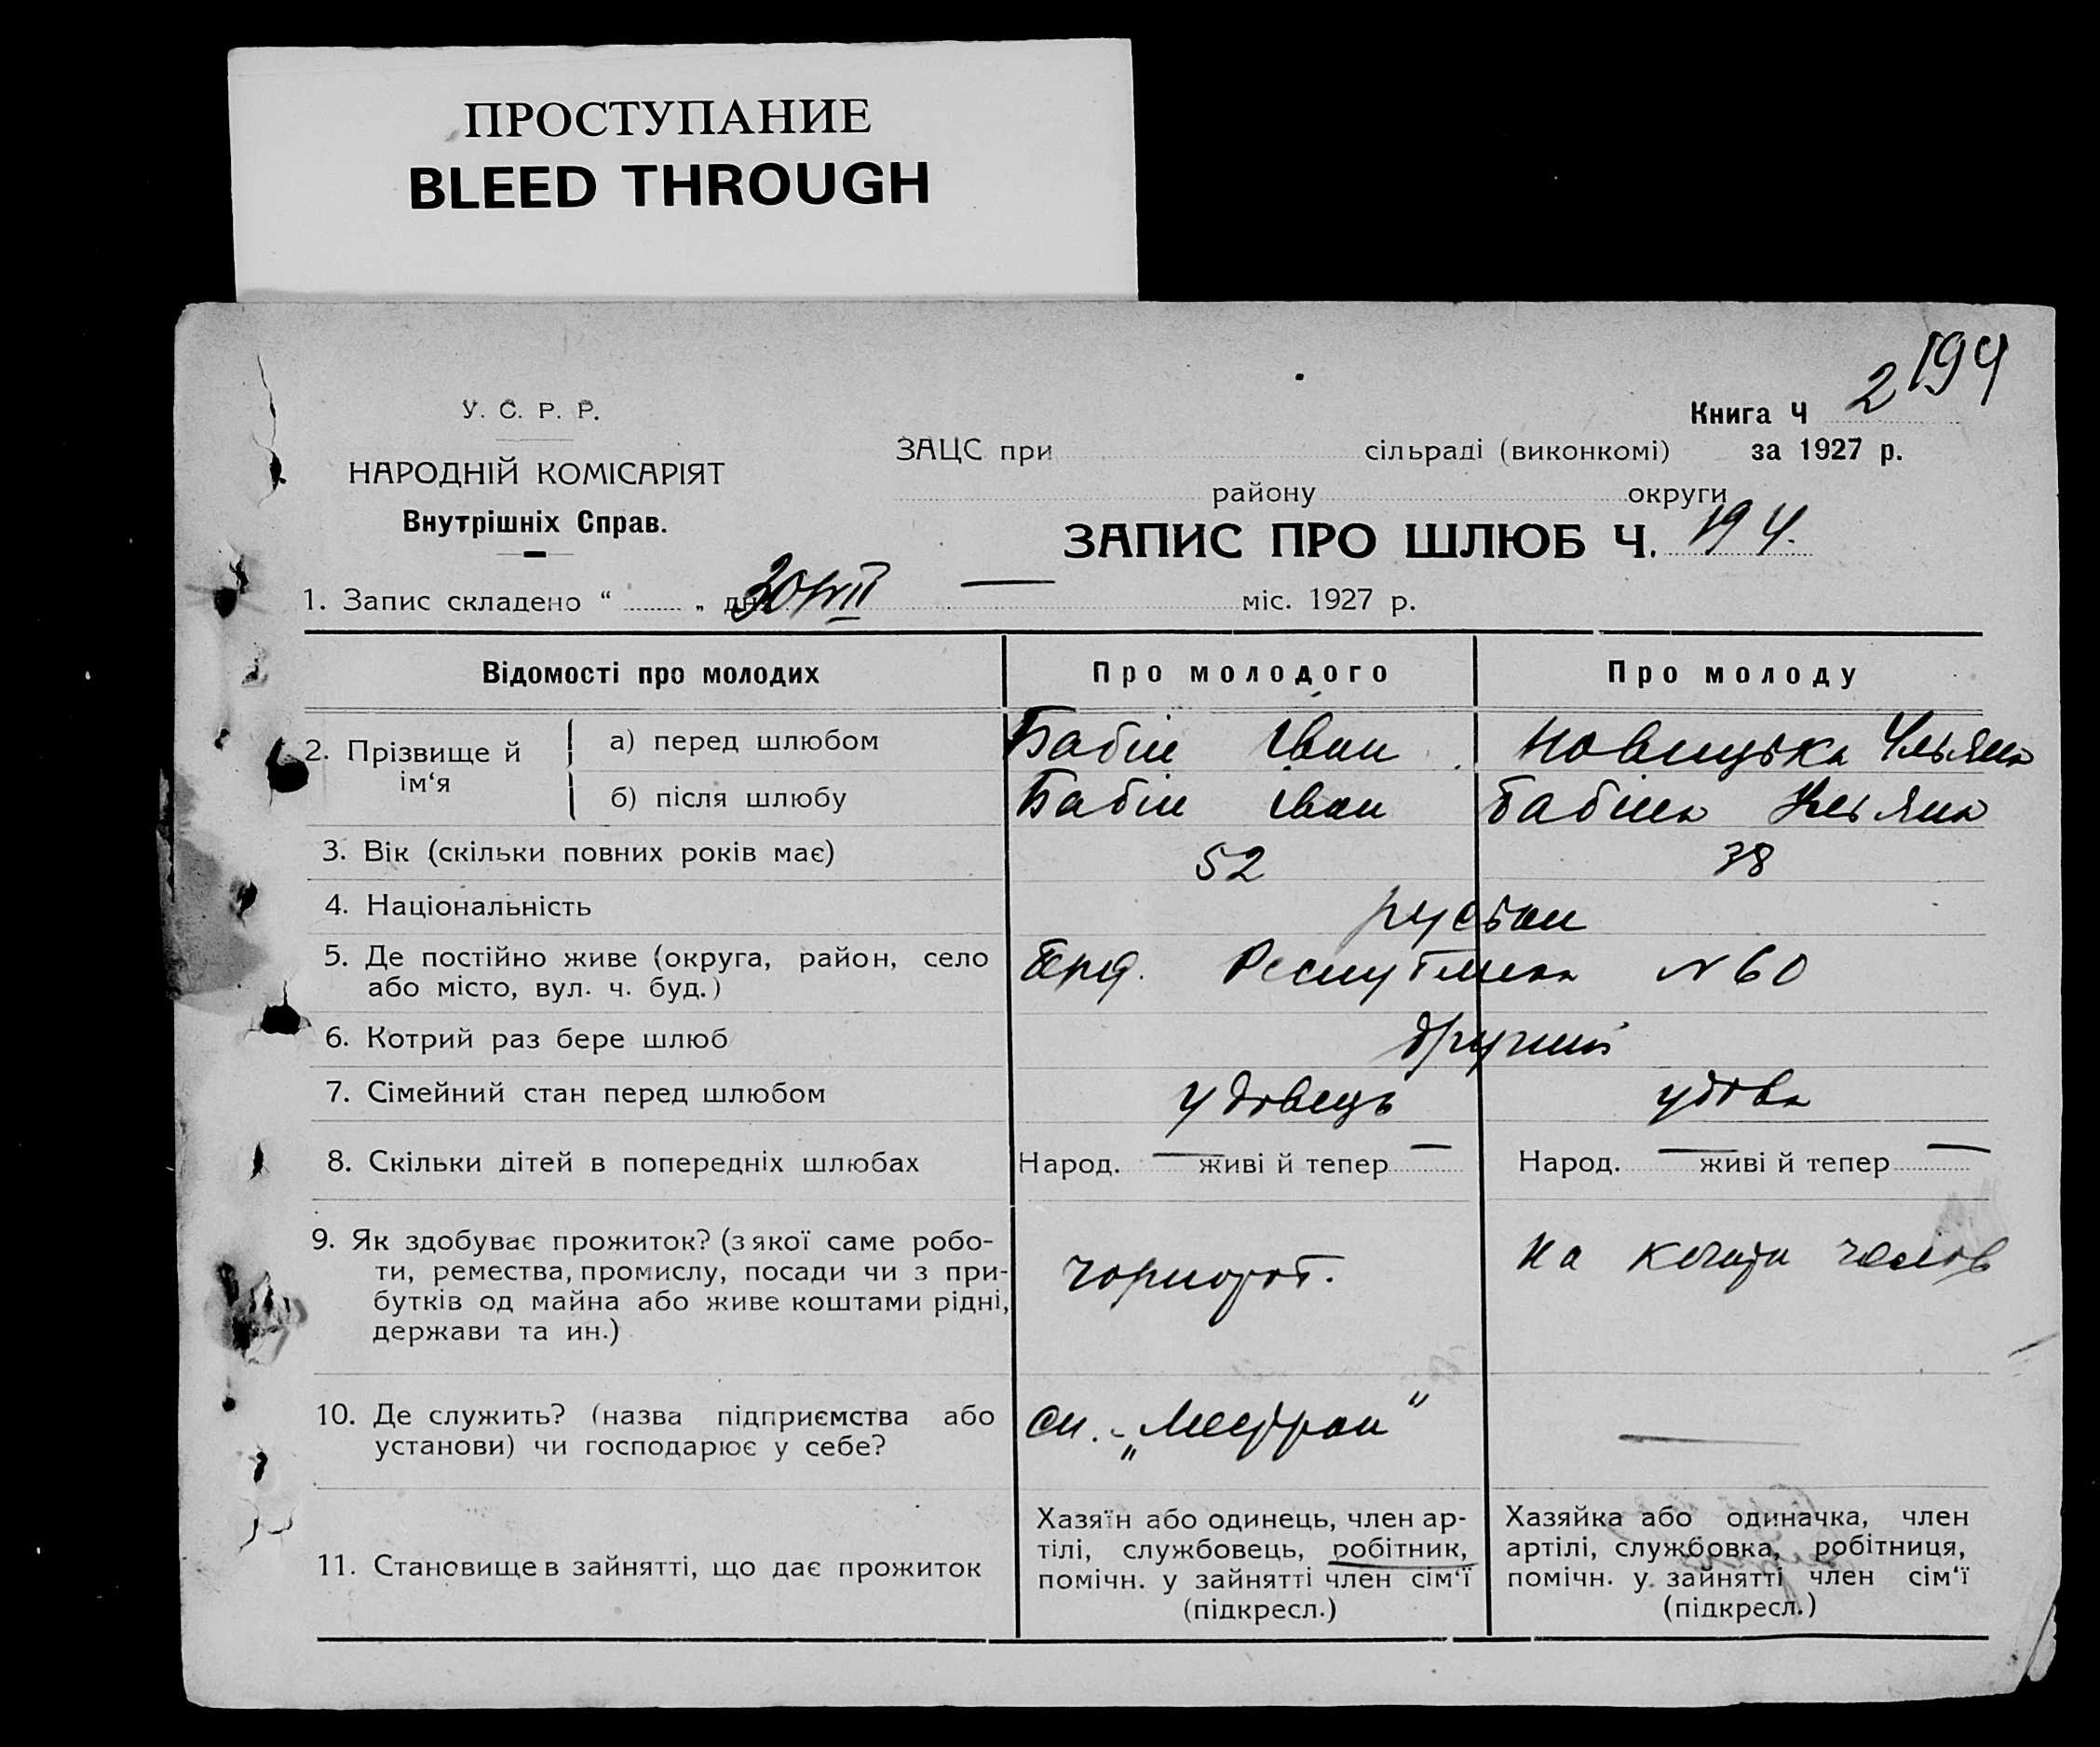 ПРОСТУПАНИЕ
BLEED THROUGH
194
У. С. Р. Р.
Книга Ч 2
НАРОДНІЙ КОМІСАРІЯТ
Внутрішніх Справ.
ЗАЦС при сільраді (виконкомі) за 1927 р.
району округи
ЗАПИС ПРО ШЛЮБ Ч. 194.
1. Запис складено “ „ дн міс. 1927 р.
Відомості про молодих
Про молодого
Про молоду
2. Прізвище й ім‘я
а) перед шлюбом
Бабій Іван
Новицька Ульяна
б) після шлюбу
Бабій Іван
Бабій Ульяна
3. Вік (скільки повних років має)
52
38
4. Національність
5. Де постійно живе (округа, район, село
або місто, вул. ч. буд.)
№ 60
6. Котрий раз бере шлюб
другий
7. Сімейний стан перед шлюбом
удовець
удова
8. Скільки дітей в попередніх шлюбах
Народ. — живі й тепер —
Народ. — живі й тепер —
9. Як здобуває прожиток? (з якої саме робо-
ти, ремества, промислу, посади чи з при-
бутків од майна або живе коштами рідні,
держави та ин.)
чорнороб.
на
10. Де служить? (назва підприємства або
установи) чи господарює у себе?
—
11. Становище в зайнятті, що дає прожиток
Хазяїн або одинець, член ар-
тілі, службовець, робітник,
помічн. у зайнятті член сім‘ї
(підкресл.)
Хазяйка або одиначка, член
артілі, службовка, робітниця,
помічн. у зайнятті член сім‘ї
(підкресл.)